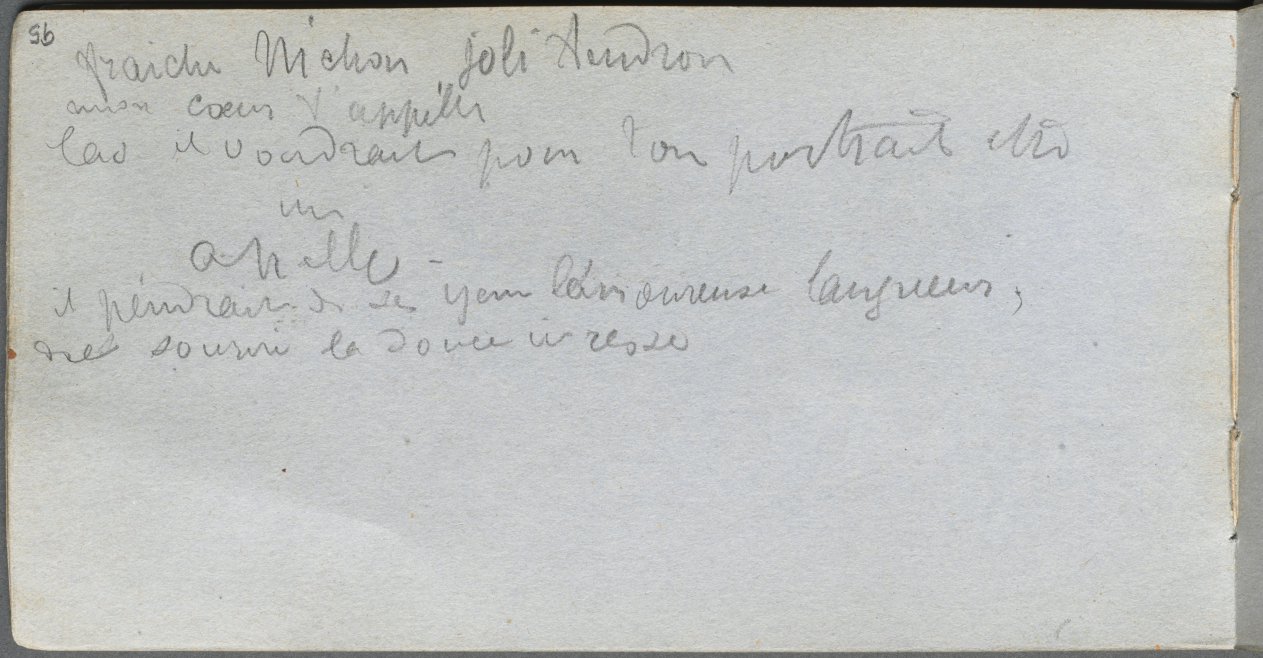 56
fraiche Nichon joli tendron
mon cœur t'appelle
las il voudrait pour ton portrait être
un
Apelle -
il peindrait de ses yeux l'amoureuse langueur,
du sourire la douce ivresse